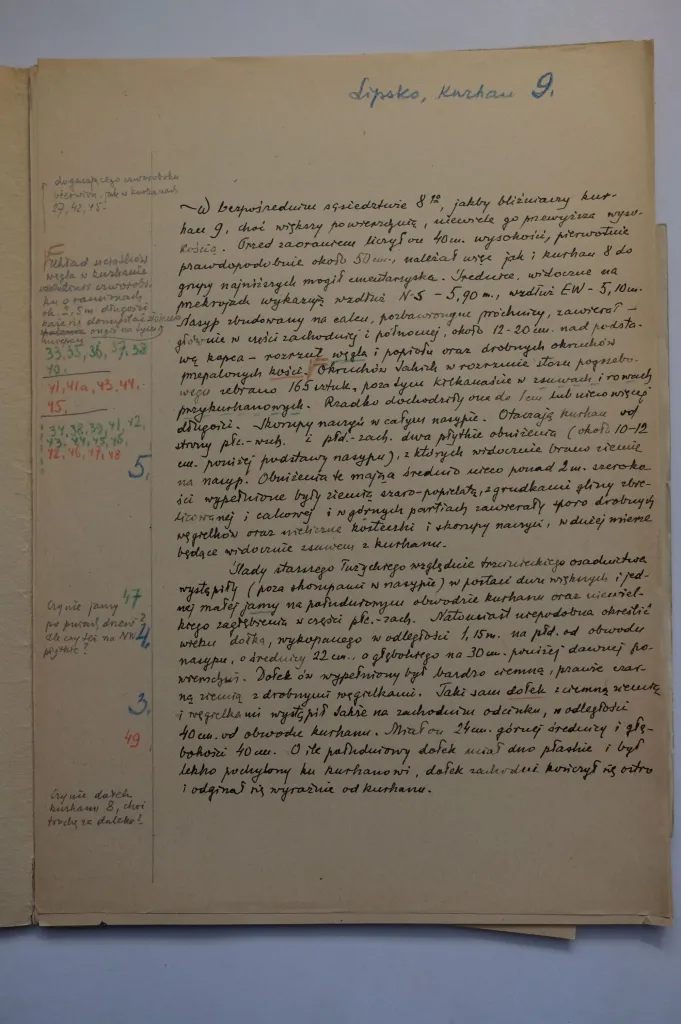 Lipsko, kurhan 9.
27, 42, 45.
Układ węgielków
węgla w kurhanie
ok. 2,5 m długości
każe się domyślać
33, 35, 36, 37, 38
40.
41, 41a, 43, 44,
45,
34, 38, 39, 41, 42,
43, 44, 45, 46,
42, 46, 47, 48
5.
W bezpośrednim sąsiedztwie 8ego, jakby bliźniaczy kur-
han 9, choć większy powierzchnią, niewiele go przewyższa wyso-
kością. Przed zaoraniem liczył on 40 cm. wysokości, pierwotnie
prawdopodobnie około 50 cm., należał więc jak i kurhan 8 do
grupy najniższych mogił cmentarzyska. Średnice, widoczne na
przekrojach wykazują wzdłuż N-S – 5,90 m., wzdłuż EW – 5,10 m.
Nasyp zbudowany na calcu, pozbawionym próchnicy, zawierał –
głównie w części zachodniej i północnej, około 12-20 cm. nad podsta-
wą kopca – rozrzut węgla i popiołu oraz drobnych okruchów
przepalonych kości. Okruchów takich w rozrzucie stosu pogrzebo-
wego zebrano 165 sztuk, poza tym kilkanaście w zsuwach i rowach
przykurhanowych. Rzadko dochodziły one do 1 cm lub nieco więcej
długości. Skorupy naczyń w całym nasypie. Otaczają kurhan od
strony płc.-wsch. i płd.-zach. dwa płytkie obniżenia (około 10-12
cm. poniżej podstawy nasypu), z których widocznie brano ziemię
na nasyp. Obniżenia te mają średnio nieco ponad 2 m. szeroko-
ści wypełnione były ziemią szaro-popielatą, z grudkami gliny zbie-
licowanej i calcowej i w górnych partiach zawierały sporo drobnych
węgielków oraz nieliczne kosteczki i skorupy naczyń, w dużej mierze
będące widocznie zsuwem z kurhanu.
Ślady starszego łużyckiego względnie trzcinieckiego osadnictwa
wystąpiły (poza skorupami w nasypie) w postaci dwu większych i jed-
nej małej jamy na południowym obwodzie kurhanu oraz niewiel-
kiego zagłębienia w części płc.-zach. Natomiast niepodobna określić
wieku dołka, wykopanego w odległości 1,15 m. na płd. od obwodu
nasypu, o średnicy 22 cm., a głębokiego na 30 cm. poniżej dawnej po-
wierzchni. Dołek ów wypełniony był bardzo ciemną, prawie czar-
ną ziemią z drobnymi węgielkami. Taki sam dołek z ciemną ziemią
i węgielkami wystąpił także na zachodnim odcinku, w odległości
40 cm. od obwodu kurhanu. Miał on 24 cm. górnej średnicy i głę-
bokości 40 cm. O ile południowy dołek miał dno płaskie i był
lekko pochylony ku kurhanowi, dołek zachodni kończył się ostro
i odginał się wyraźnie od kurhanu.
47
Czy nie jamy
4.
3.
49
Czy nie dołek
kurhanu 8, choć
trochę za daleko?